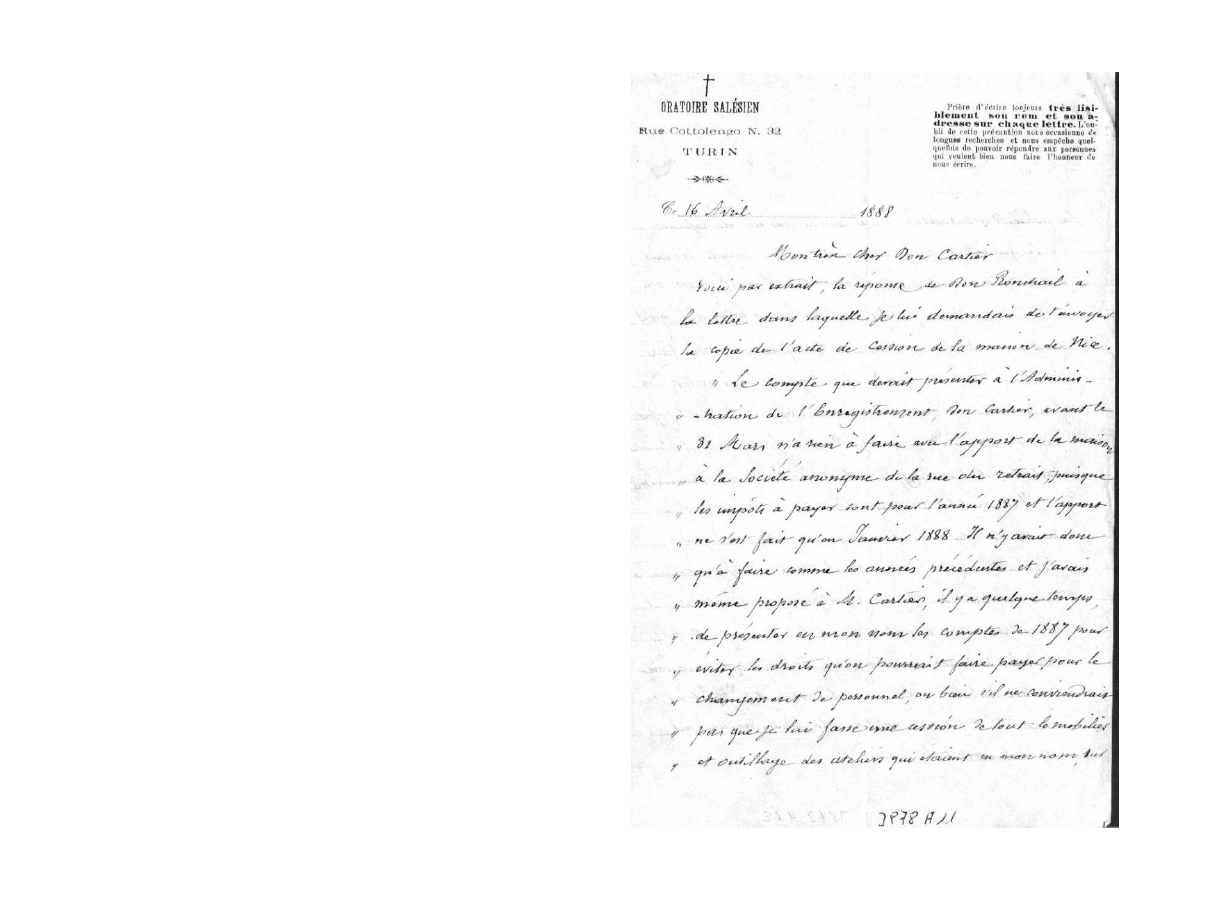 ORATOIRE SALÉSIEN
Rue Cottolengo N. 32
TURIN
Prière d'écrire toujours très lisi-
blement son nom et son a-
dresse sur chaque lettre. L'ou-
bli de cette précaution nous occasionne de
longues recherches et nous empêche quel-
quefois de pouvoir répondre aux personnes
qui veulent bien nous faire l'honneur de
nous écrire.
Ce 16 Avril 1888
Mon très cher Don Cartier
Voici par extrait, la réponse de Don Ronchail à
la lettre dans laquelle je lui demandais de t'envoyer
la copie de l'acte de cession de la maison de Nice.
" Le compte que devait présenter à l'Adminis-
" -tration de l'Enregistrement, Don Cartier, avant le
" 31 Mars n'a rien à faire avec l'apport de la maison
" à la Société anonyme de la rue du retrait, puisque
" les impôts à payer sont pour l'année 1887 et l'apport
" ne s'est fait qu'en Janvier 1888. Il n'y avait donc
" qu'à faire comme les années précédentes et j'avais
" même proposé à M. Cartier, il y a quelque temps,
" de présenter en mon nom les comptes de 1887 pour
" éviter les droits qu'on pourrait faire payer pour le
" changement de personnel, ou bien s'il ne conviendrait
" pas que je lui fasse une cession de tout le mobilier
" et outillage des ateliers qui étaient en mon nom, sur
3878 A 11